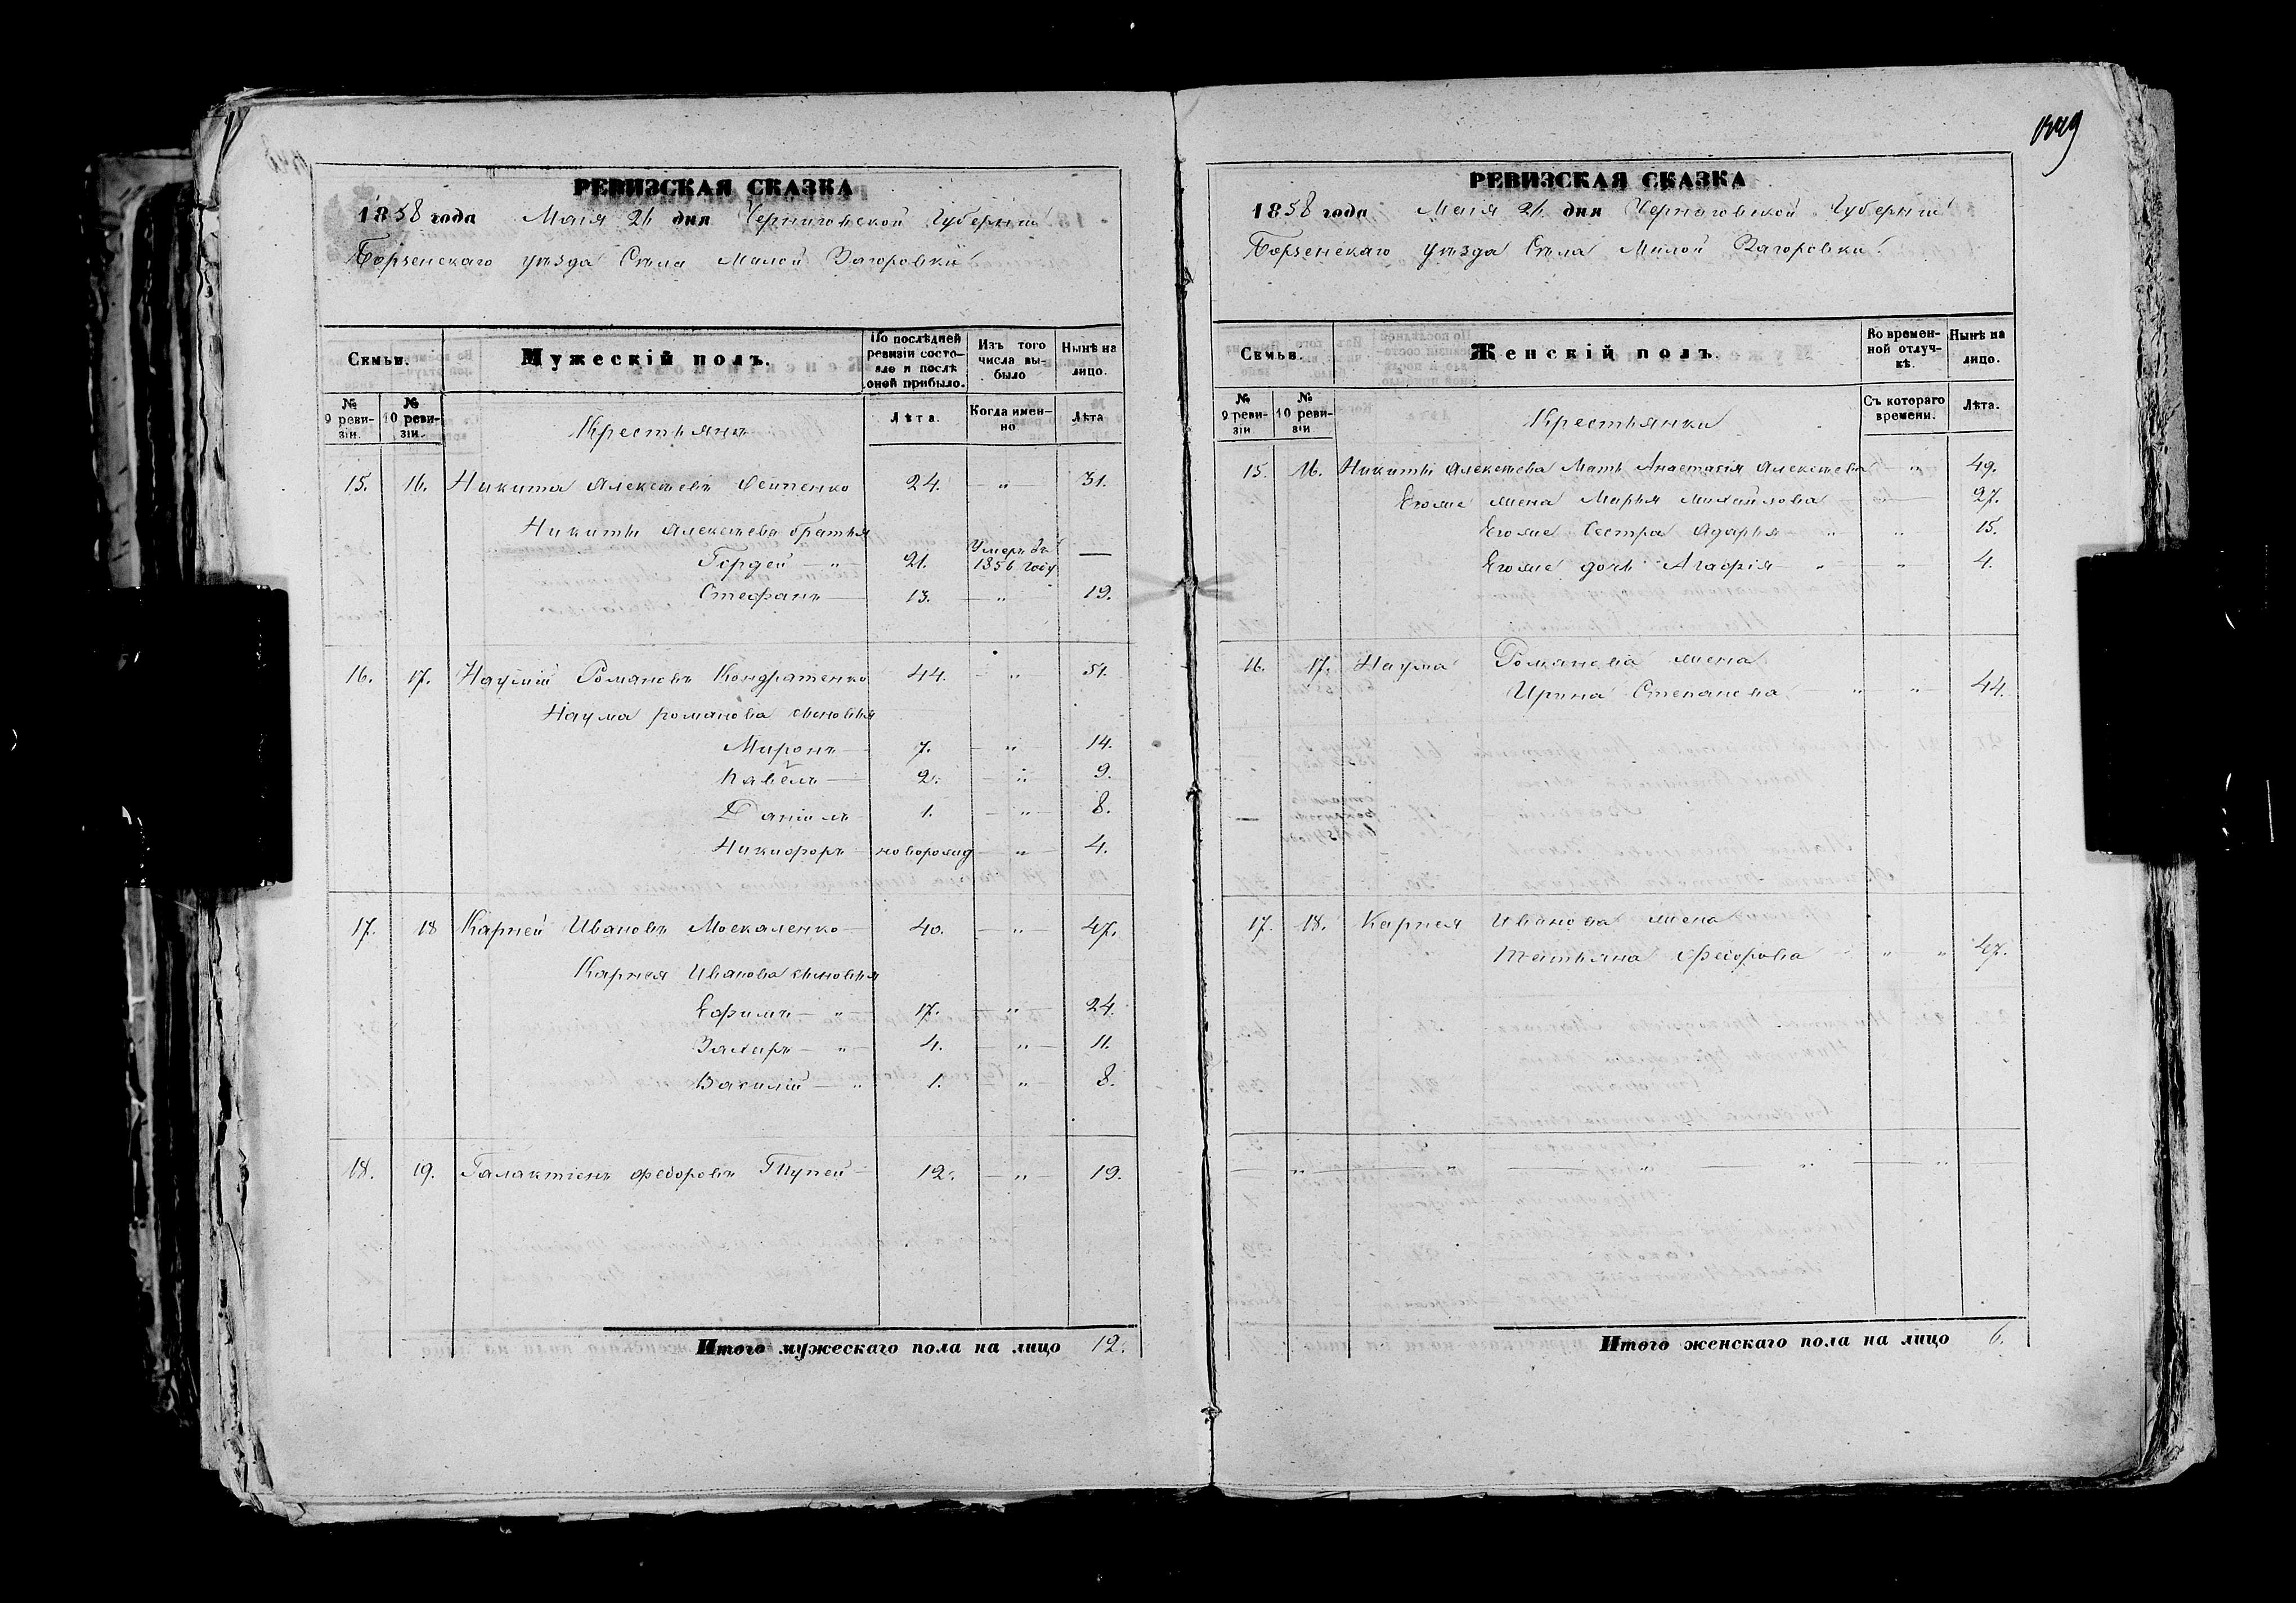 1849
РЕВИЗСКАЯ СКАЗКА
1858 года Маія 21 дня Черниговской Губерніи
Борзенскаго уѣзда Села Малой Загоровки
Семьи.
Мужескій полъ.
По послѣдней ревизіи состояло и послѣ оной прибыло.
Изъ того числа выбыло
Нынѣ на лицо.
№ 9 ревизіи.
№ 10 ревизіи.
Крестьянъ
Лѣта.
Когда именно
Лѣта
15. 16. Никита Алексѣевъ 24. — „ — 31.
Никиты Алексѣева братья
Гордей — „ 21. Умеръ въ 1856 году —
Стефанъ — 13. — „ 19.
16. 17. Наумъ Романовъ Кондратенко 44. — „ 51.
Наума Романова сыновья
Миронъ — 7. — „ 14.
Павелъ — 2. — „ 9.
Даніилъ 1. — „ — 8.
Никифоръ — новорожд — „ 4.
17. 18 Карпей Ивановъ Москаленко — 40. — „ — 47.
Карпея Иванова сыновья
Ефимъ — „ — 17. — „ — 24.
Захаръ — „ — 4. — „ — 11.
Василій — „ 1. — „ 8.
18. 19. Галактіонъ Федоровъ Тупей — 12. — „ — 19.
Итого мужескаго пола на лицо 12.
РЕВИЗСКАЯ СКАЗКА
1858 года Маія 21 дня Черниговской Губерніи
Борзенскаго уѣзда Села Малой Загоровки
Семьи.
Женскій полъ.
Во временной отлучкѣ.
Нынѣ на лицо.
№ 9 ревизіи
№ 10 ревизіи
Крестьянки
Съ котораго времени.
Лѣта.
15. 16. Никиты Алексѣева Мать Анастасія Алексѣева — „ — 49.
Егоже жена Марья Михайлова — „ — 27.
Егоже Сестра Дарья — „ „ 15.
Егоже дочь Агафія — „ — „ — 4.
16. 17. Наума Романова жена
Ирина Степанова — „ — „ — 44.
17. 18. Карпея Иванова жена
Татьяна Федорова „ — „ 47.
— „ — „ — „ — „ — „
Итого женскаго пола на лицо 6.